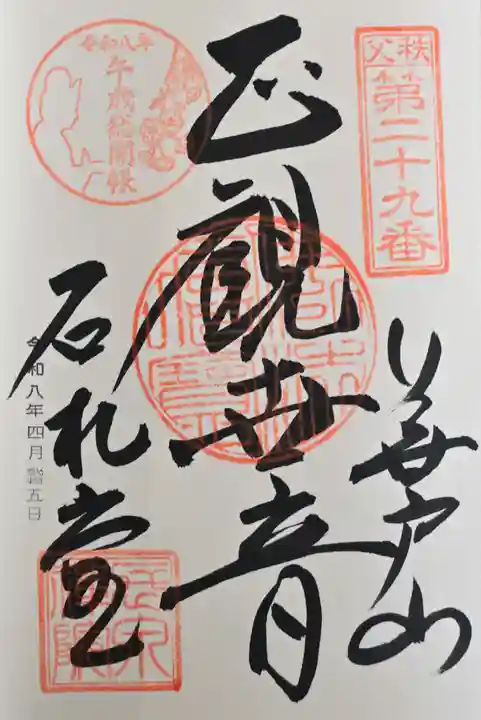 秩父
第二十九番
笹戸山
正観世音
令和八年
午歳総開帳
石札堂
令和八年四月五日